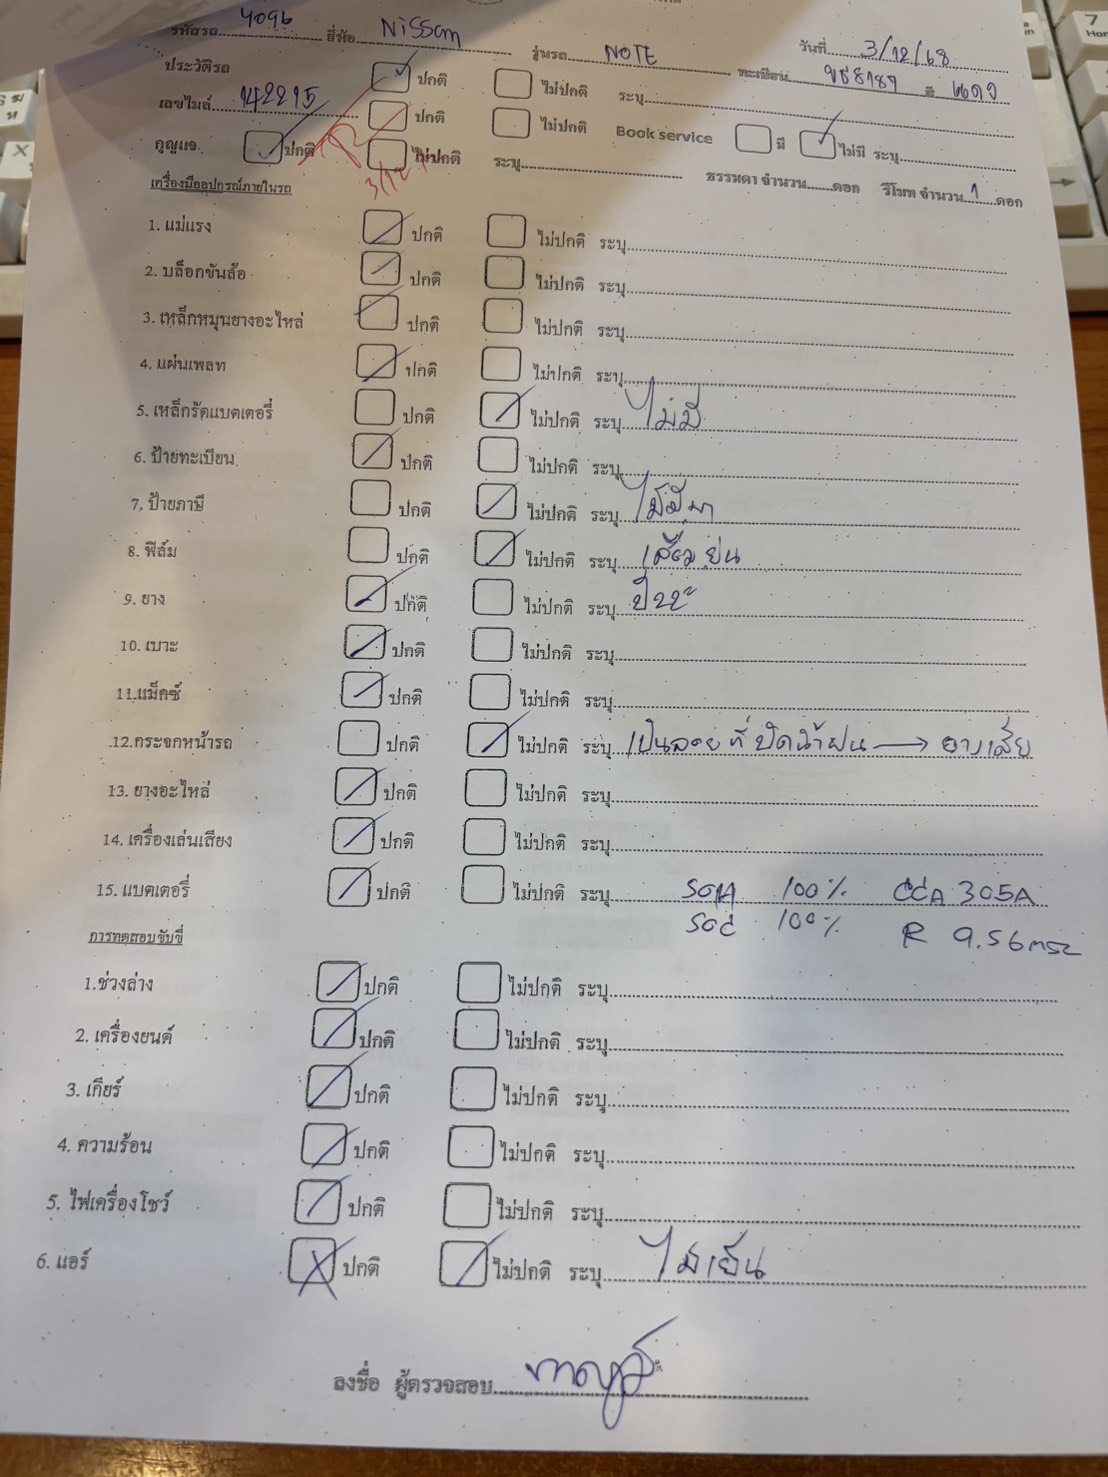 รหัสรถ 4096 ยี่ห้อ Nissan รุ่นรถ NOTE วันที่ 3/12/68
ประวัติรถ ปกติ ไม่ปกติ ระบุ ทะเบียน สี แดง
เลขไมล์ 142215 ปกติ ไม่ปกติ Book service มี ไม่มี ระบุ
กุญแจ ปกติ ไม่ปกติ ระบุ ธรรมดา จำนวน ดอก รีโมท จำนวน 1 ดอก
3/12
เครื่องมืออุปกรณ์ภายในรถ
1. แม่แรง ปกติ ไม่ปกติ ระบุ
2. บล็อกขันล้อ ปกติ ไม่ปกติ ระบุ
3. เหล็กหมุนยางอะไหล่ ปกติ ไม่ปกติ ระบุ
4. แผ่นเพลท ปกติ ไม่ปกติ ระบุ
5. เหล็กรัดแบตเตอรี่ ปกติ ไม่ปกติ ระบุ ไม่มี
6. ป้ายทะเบียน ปกติ ไม่ปกติ ระบุ
7. ป้ายภาษี ปกติ ไม่ปกติ ระบุ ไม่มีมา
8. ฟิล์ม ปกติ ไม่ปกติ ระบุ เสื่อม ย่น
9. ยาง ปกติ ไม่ปกติ ระบุ ปี22
10. เบาะ ปกติ ไม่ปกติ ระบุ
11.แม็คซ์ ปกติ ไม่ปกติ ระบุ
12.กระจกหน้ารถ ปกติ ไม่ปกติ ระบุ เป็นลอยที่ปัดน้ำฝน → ยางเสีย
13. ยางอะไหล่ ปกติ ไม่ปกติ ระบุ
14. เครื่องเล่นเสียง ปกติ ไม่ปกติ ระบุ
15. แบตเตอรี่ ปกติ ไม่ปกติ ระบุ SOH 100% CCA 305A
SOC 100% R 9.56
การทดสอบขับขี่
1.ช่วงล่าง ปกติ ไม่ปกติ ระบุ
2. เครื่องยนต์ ปกติ ไม่ปกติ ระบุ
3. เกียร์ ปกติ ไม่ปกติ ระบุ
4. ความร้อน ปกติ ไม่ปกติ ระบุ
5. ไฟเครื่องโชว์ ปกติ ไม่ปกติ ระบุ
6. แอร์ ปกติ ไม่ปกติ ระบุ ไม่เย็น
ลงชื่อ ผู้ตรวจสอบ